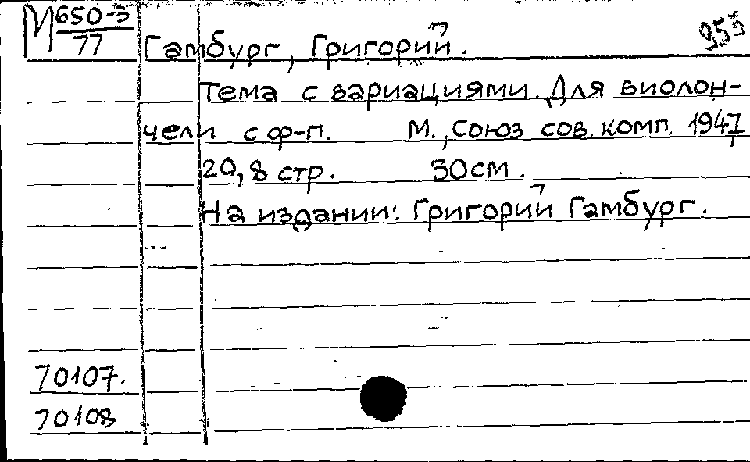 М 650-3
77
955
Гамбург, Григорий.
Тема с вариациями. Для виолон-
чели с ф-п. М., Союз сов. комп. 1947
20, 8 стр. 30см.
На издании: Григорий Гамбург.
70107.
70108